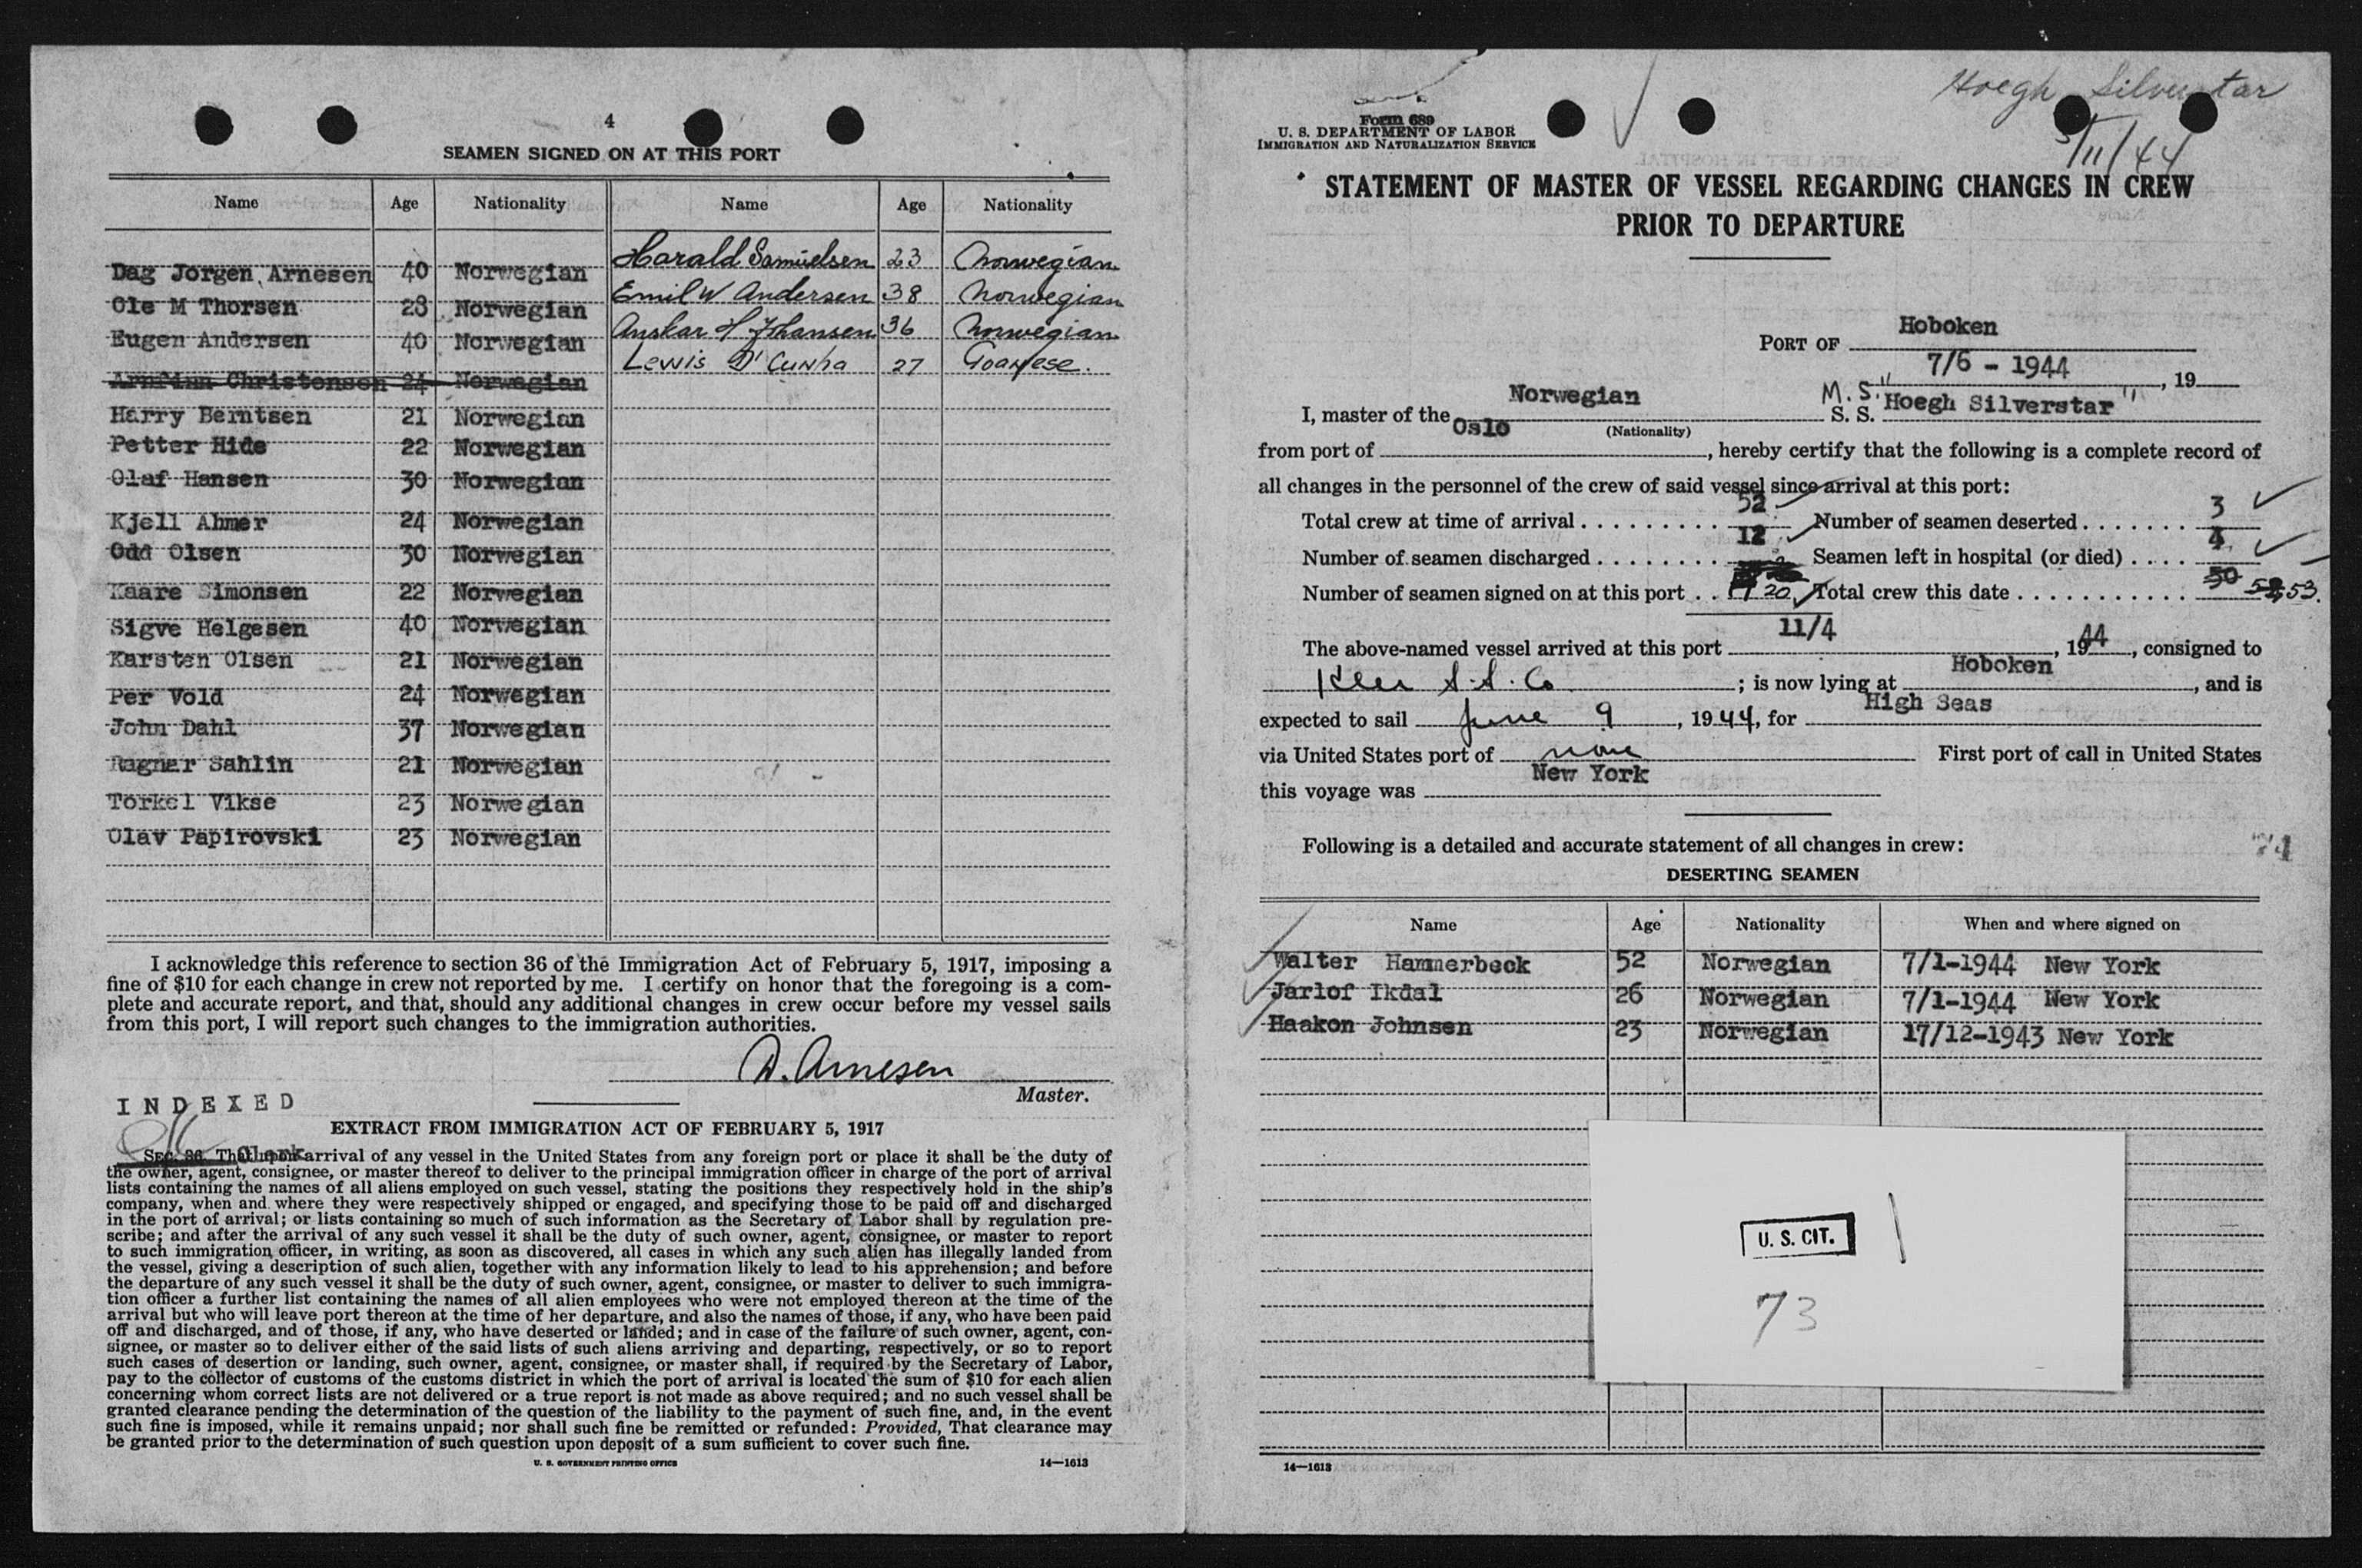 4
SEAMEN SIGNED ON AT THIS PORT
Name Age Nationality Name Age Nationality
Dag Jorgen Arnesen 40 Norwegian Harald Samuelsen 23 Norwegian
Ole M Thorsen 28 Norwegian Emil W Andersen 38 Norwegian
Eugen Andersen 40 Norwegian Anskar H Johansen 36 Norwegian
Arnfinn Christensen 24 Norwegian Lewis D'Cunha 27 Goanese.
Harry Berntsen 21 Norwegian
Petter Hide 22 Norwegian
Olaf Hansen 30 Norwegian
Kjell Ahmer 24 Norwegian
Odd Olsen 30 Norwegian
Kaare Simonsen 22 Norwegian
Sigve Helgesen 40 Norwegian
Karsten Olsen 21 Norwegian
Per Vold 24 Norwegian
John Dahl 37 Norwegian
Ragnar Sahlin 21 Norwegian
Torkel Vikse 23 Norwegian
Olav Papirovski 23 Norwegian
I acknowledge this reference to section 36 of the Immigration Act of February 5, 1917, imposing a
fine of $10 for each change in crew not reported by me. I certify on honor that the foregoing is a com-
plete and accurate report, and that, should any additional changes in crew occur before my vessel sails
from this port, I will report such changes to the immigration authorities.
D. Arnesen
Master.
INDEXED
EXTRACT FROM IMMIGRATION ACT OF FEBRUARY 5, 1917
Clerk
SEC. 36. That upon arrival of any vessel in the United States from any foreign port or place it shall be the duty of
the owner, agent, consignee, or master thereof to deliver to the principal immigration officer in charge of the port of arrival
lists containing the names of all aliens employed on such vessel, stating the positions they respectively hold in the ship's
company, when and where they were respectively shipped or engaged, and specifying those to be paid off and discharged
in the port of arrival; or lists containing so much of such information as the Secretary of Labor shall by regulation pre-
scribe; and after the arrival of any such vessel it shall be the duty of such owner, agent, consignee, or master to report
to such immigration officer, in writing, as soon as discovered, all cases in which any such alien has illegally landed from
the vessel, giving a description of such alien, together with any information likely to lead to his apprehension; and before
the departure of any such vessel it shall be the duty of such owner, agent, consignee, or master to deliver to such immigra-
tion officer a further list containing the names of all alien employees who were not employed thereon at the time of the
arrival but who will leave port thereon at the time of her departure, and also the names of those, if any, who have been paid
off and discharged, and of those, if any, who have deserted or landed; and in case of the failure of such owner, agent, con-
signee, or master so to deliver either of the said lists of such aliens arriving and departing, respectively, or so to report
such cases of desertion or landing, such owner, agent, consignee, or master shall, if required by the Secretary of Labor,
pay to the collector of customs of the customs district in which the port of arrival is located the sum of $10 for each alien
concerning whom correct lists are not delivered or a true report is not made as above required; and no such vessel shall be
granted clearance pending the determination of the question of the liability to the payment of such fine, and, in the event
such fine is imposed, while it remains unpaid; nor shall such fine be remitted or refunded: Provided, That clearance may
be granted prior to the determination of such question upon deposit of a sum sufficient to cover such fine.
U. S. GOVERNMENT PRINTING OFFICE 14—1613
Hoegh Silverstar
/11/44
Form 689
U. S. DEPARTMENT OF LABOR
IMMIGRATION AND NATURALIZATION SERVICE
STATEMENT OF MASTER OF VESSEL REGARDING CHANGES IN CREW
PRIOR TO DEPARTURE
PORT OF Hoboken
7/6 - 1944, 19
I, master of the Norwegian M.S. S. S. "Hoegh Silverstar"
(Nationality)
from port of Oslo, hereby certify that the following is a complete record of
all changes in the personnel of the crew of said vessel since arrival at this port:
Total crew at time of arrival . . . . . . . . . 52 Number of seamen deserted . . . . . . . 3
Number of seamen discharged . . . . . . . . 12 Seamen left in hospital (or died) . . . . 4
Number of seamen signed on at this port . . 20 Total crew this date . . . . . . . . . . . . 50 52, 53.
The above-named vessel arrived at this port 11/4, 1944, consigned to
Kerr S.S. Co; is now lying at Hoboken, and is
expected to sail June 9, 1944, for High Seas
via United States port of none First port of call in United States
this voyage was New York
Following is a detailed and accurate statement of all changes in crew:
DESERTING SEAMEN
Name Age Nationality When and where signed on
Walter Hammerbeck 52 Norwegian 7/1-1944 New York
Jarlof Ikdal 26 Norwegian 7/1-1944 New York
Haakon Johnsen 23 Norwegian 17/12-1943 New York
U. S. CIT.
73
14—1613